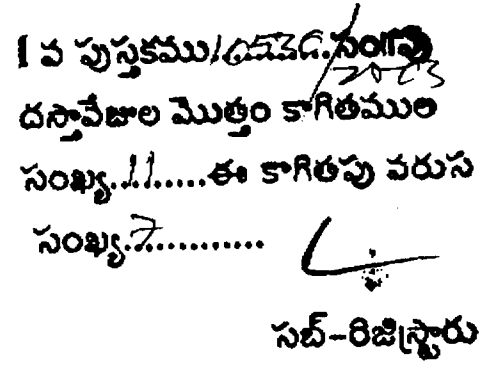 1 వ పుస్తకము 10539/2023 సం॥పు
దస్తావేజుల మొత్తం కాగితముల
సంఖ్య..11.....ఈ కాగితపు వరుస
సంఖ్య.7............
సబ్-రిజిస్ట్రారు